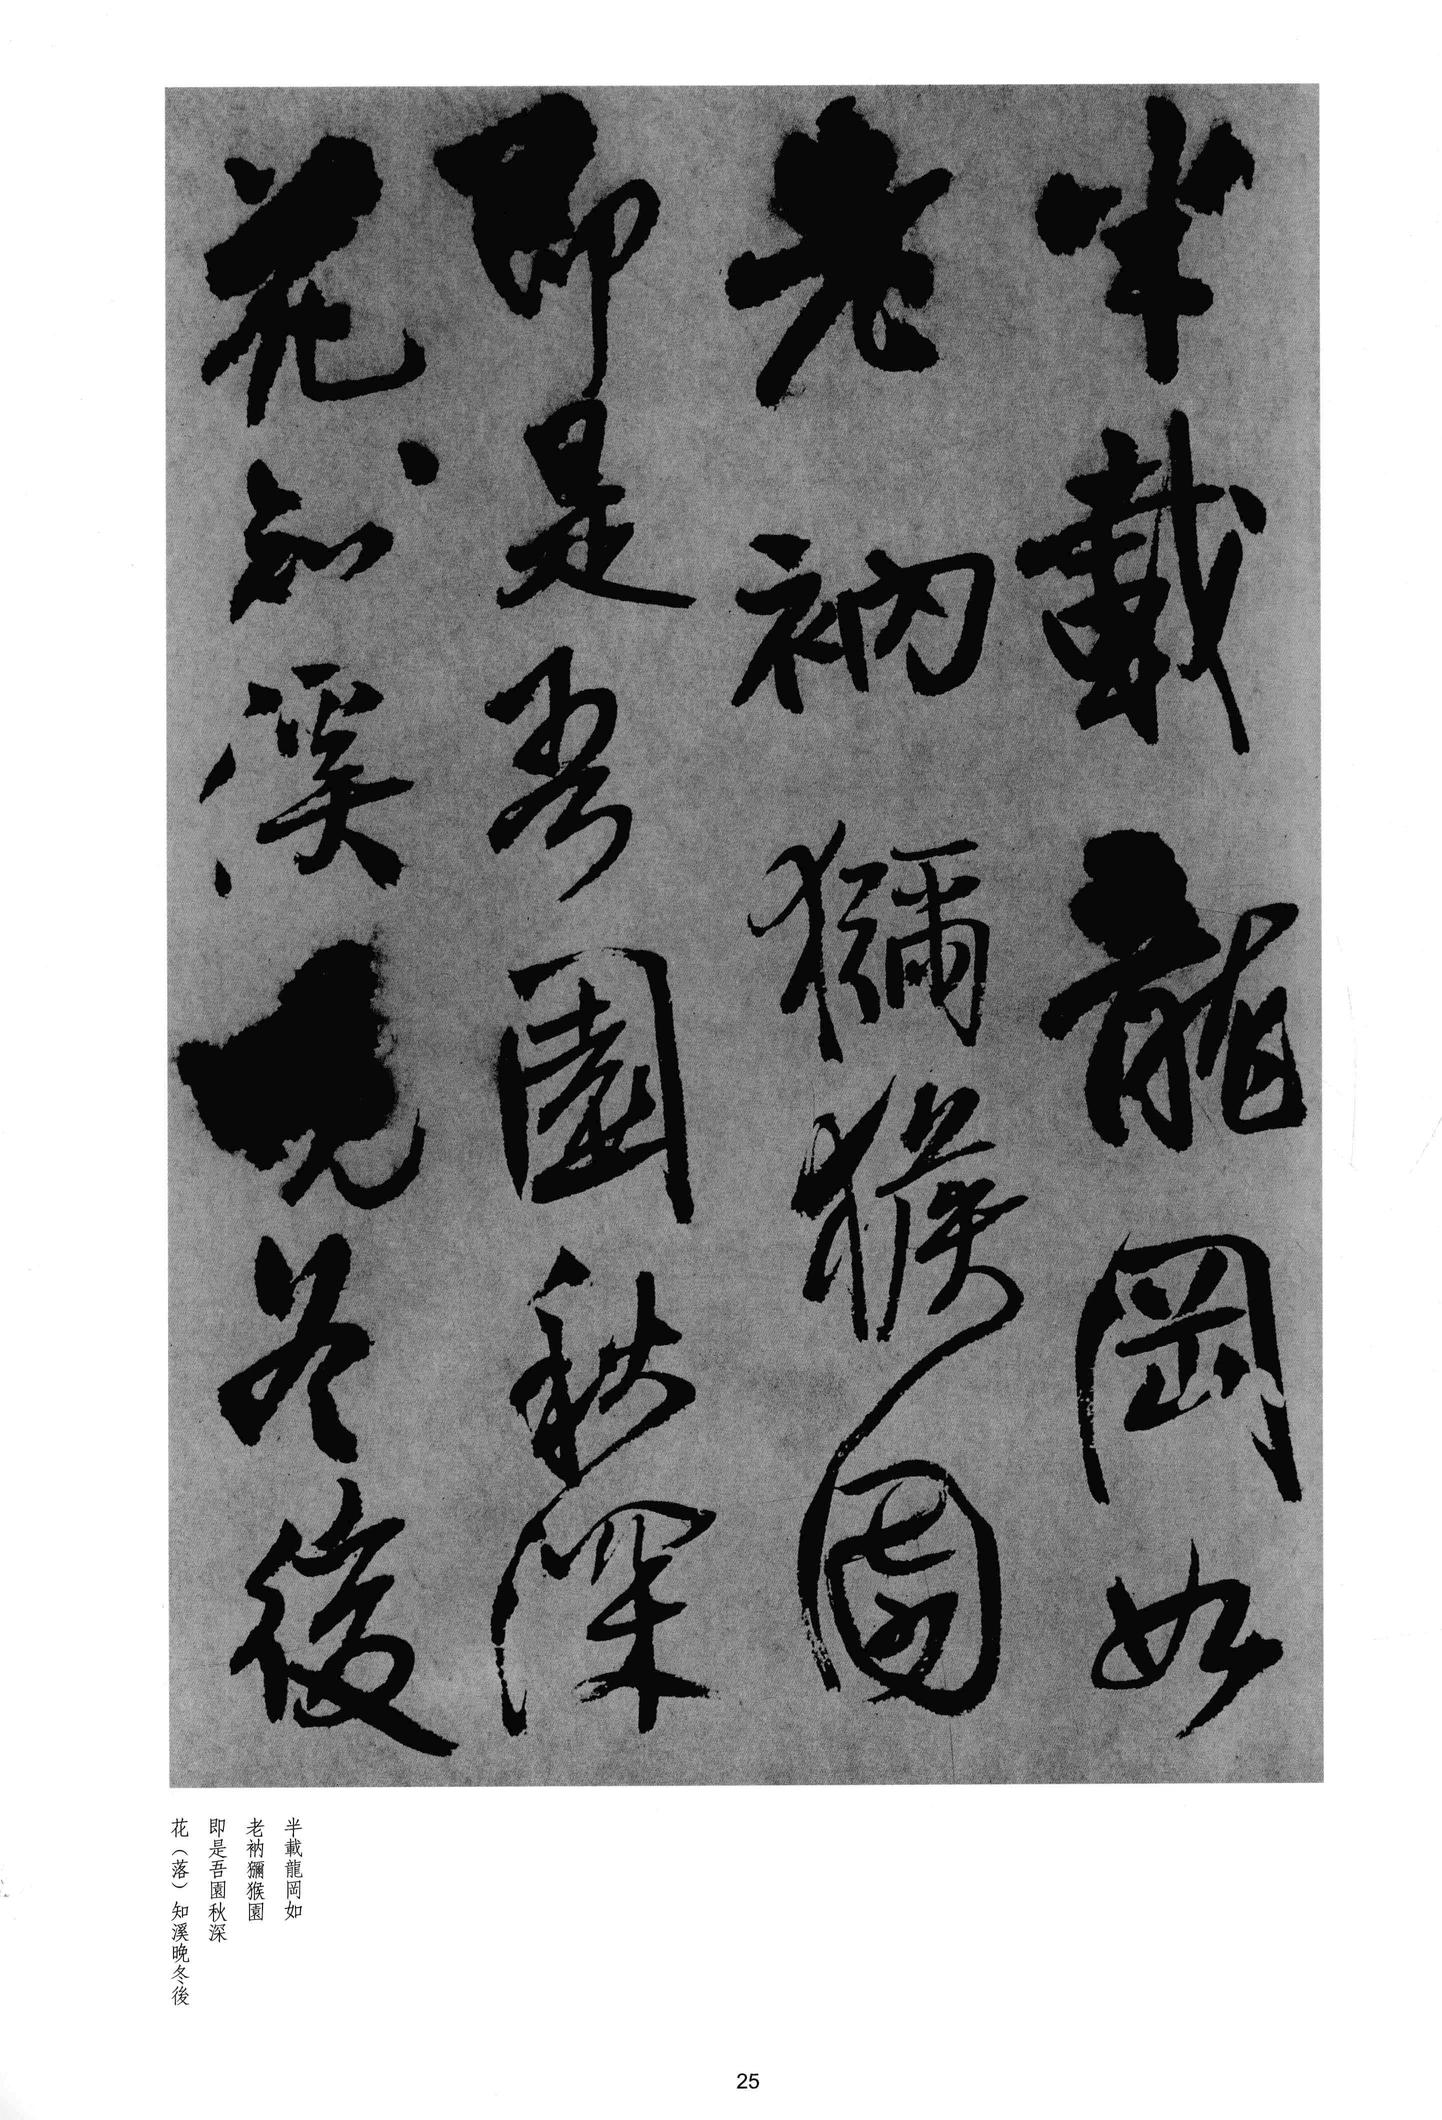 半載龍岡如
老衲獼猴園
即是吾園秋深
花知溪晚冬後
半載龍岡如
老衲獼猴園
即是吾園秋深
花（落）知溪晚冬後
25